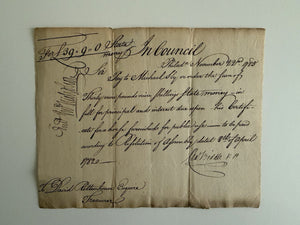 For £39-9-0 State money
In Council
Philada November 22d 1788
Sir
Pay to Michael Sly or order the sum of
Thirty nine pounds nine shillings State money in
full for principal and interest due upon this Certifi-
cate for a horse furnished for public use to be paid
according to Resolution of Assembly dated 8th of April
1782
To David Rittenhouse Esquire
Treasurer